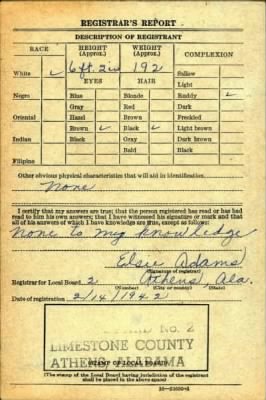 REGISTRAR'S REPORT
DESCRIPTION OF REGISTRANT
RACE HEIGHT (Approx.) WEIGHT (Approx.) COMPLEXION
White ✓ 6 ft. 2 in 192 Sallow
EYES HAIR Light
Negro Blue Blonde Ruddy ✓
Gray Red Dark
Oriental Hazel Brown Freckled
Brown ✓ Black ✓ Light brown
Indian Black Gray Dark brown
Bald Black
Filipino
Other obvious physical characteristics that will aid in identification
None
I certify that my answers are true; that the person registered has read or has had
read to him his own answers; that I have witnessed his signature or mark and that
all of his answers of which I have knowledge are true, except as follows:
None to my knowledge
Elsie Adams
(Signature of registrar)
Registrar for Local Board 2 Athens, Ala.
(Number) (City or county) (State)
Date of registration 2/14/1942
NO. 2
LIMESTONE COUNTY
ATHENS, ALABAMA
STAMP OF LOCAL BOARD
(The stamp of the Local Board having jurisdiction of the registrant
shall be placed in the above space.)